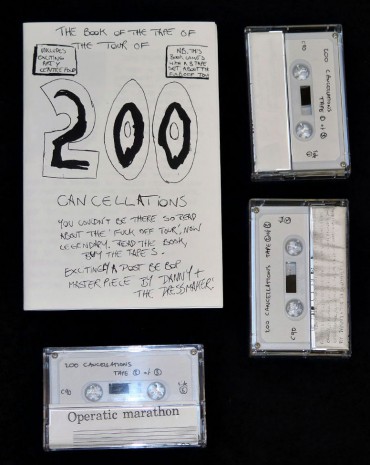 THE BOOK OF THE TAPE OF
THE TOUR OF
INCLUDES
EXCITING
CENTREFOLD
N.B. THIS
BOOK COMES
WITH A 3 TAPE
SET ABOUT THE
200
CANCELLATIONS
YOU COULDN'T BE THERE SO READ
ABOUT THE 'FUCK OFF TOUR', NOW
LEGENDARY. READ THE BOOK,
BUY THE TAPES.
EXCITINGLY A POST BE BOP
MASTERPIECE BY DANNY +
THE DRESSMAKER'S
200 CANCELLATIONS
TAPE
C90
200 CANCELLATIONS TAPE
C90
200 CANCELLATIONS
TAPE
C90
Operatic marathon